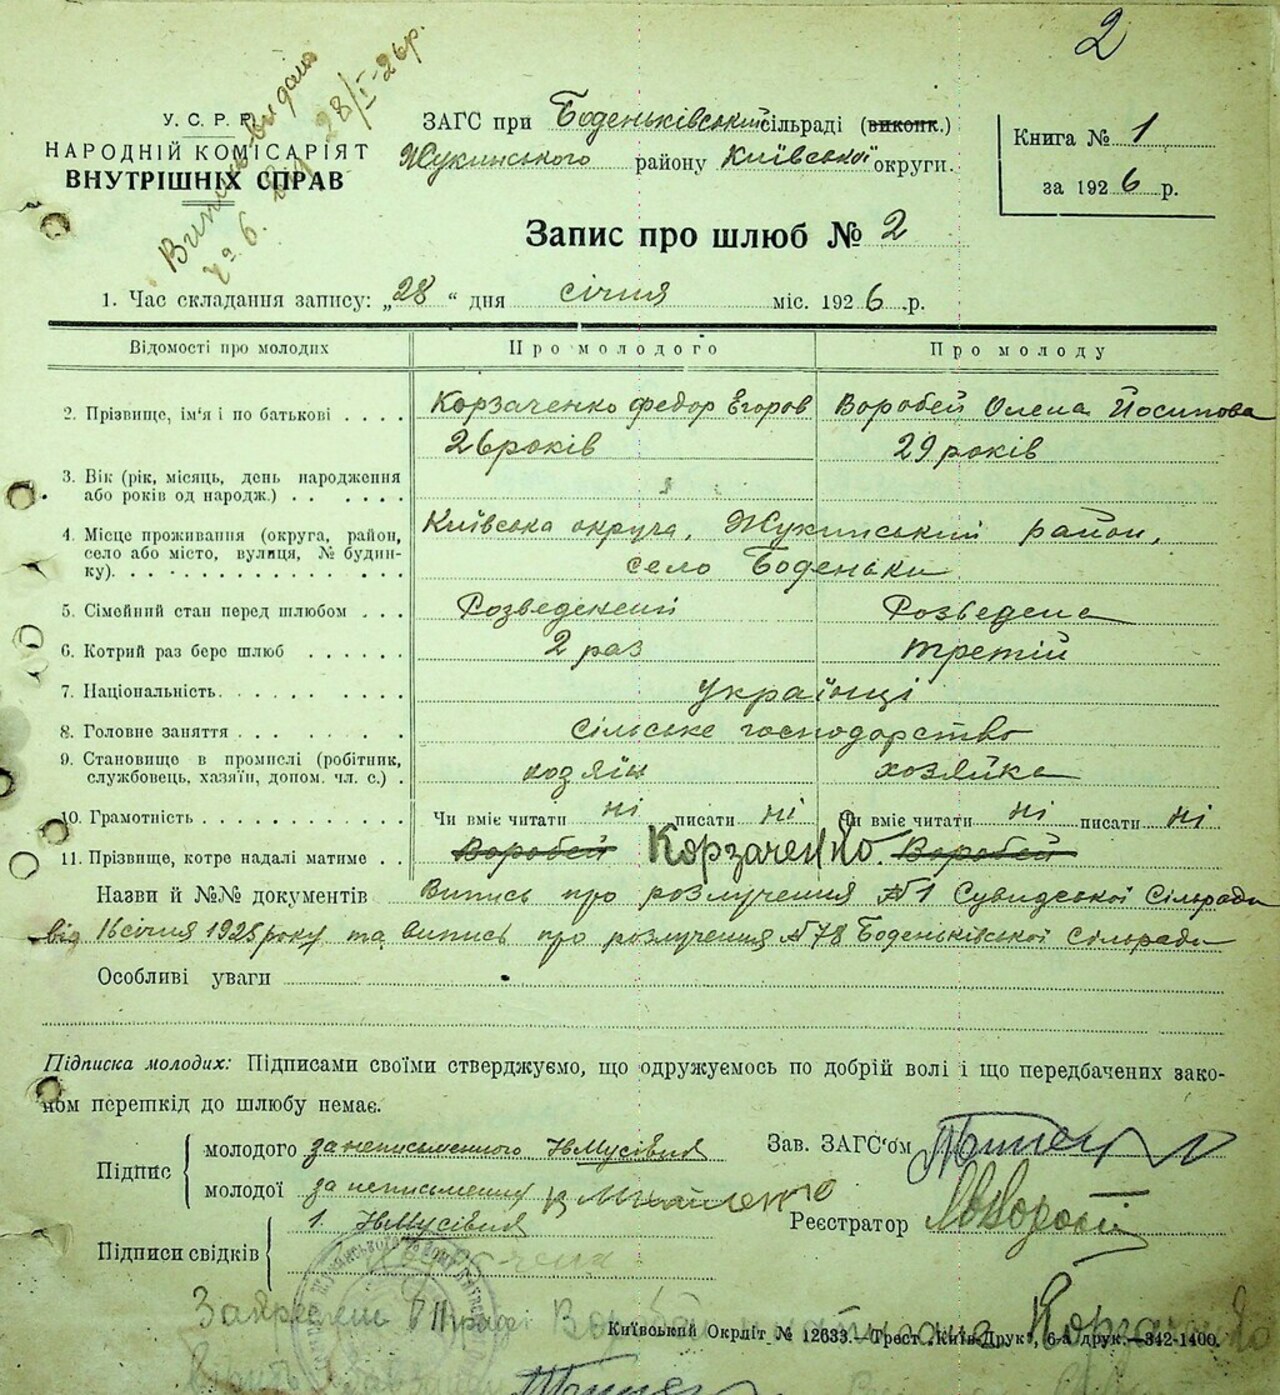 2
Випись видана
№ 6. 28/I-26р.
У. С. Р. Р.
НАРОДНІЙ КОМІСАРІЯТ
ВНУТРІШНІХ СПРАВ
ЗАГС при Боденьківській сільраді (виконк.)
Жукинського району Київської округи.
Книга № 1
за 1926 р.
Запис про шлюб № 2
1. Час складання запису: „28“ дня січня міс. 1926 р.
Відомості про молодих Про молодого Про молоду
2. Прізвище, ім'я і по батькові . . . . Корзаченко Федор Егоров Воробей Олена Йосипова
26 років 29 років
3. Вік (рік, місяць, день народження
або років од народж.) . . . . . .
4. Місце проживання (округа, район, Київська округа, Жукинський район,
село або місто, вулиця, № будин- село Боденьки
ку). . . . . . . . . . . . . . .
5. Сімейний стан перед шлюбом . . . Розведений Розведена
6. Котрий раз бере шлюб . . . . . . 2 раз третій
7. Національність. . . . . . . . . . українці
8. Головне заняття . . . . . . . . Сільське господарство
9. Становище в промислі (робітник,
службовець, хазяїн, допом. чл. с.) . хозяїн хозяйка
10. Грамотність . . . . . . . . . . . . Чи вміє читати ні писати ні Чи вміє читати ні писати ні
11. Прізвище, котре надалі матиме . . Воробей Корзаченко. Воробей
Назви й №№ документів Випись про розлучення №1 Сувидської Сільради
від 16 січня 1925 року та випись про розлучення №78 Боденьківської Сільради
Особливі уваги
Підписка молодих: Підписами своїми стверджуємо, що одружуємось по добрій волі і що передбачених зако-
ном перешкід до шлюбу немає.
Підпис
молодого за неписьменного Н Мусієня
молодої за неписьменну Михайленко
Зав. ЗАГС'ом
Реєстратор
Підписи свідків
1. Н Мусієня
Закреслене в 11 графі Воробей Корзаченко
Київський Окрліт № 12633.—Трест „Київ-Друк", 6-а друк.—342-1400.